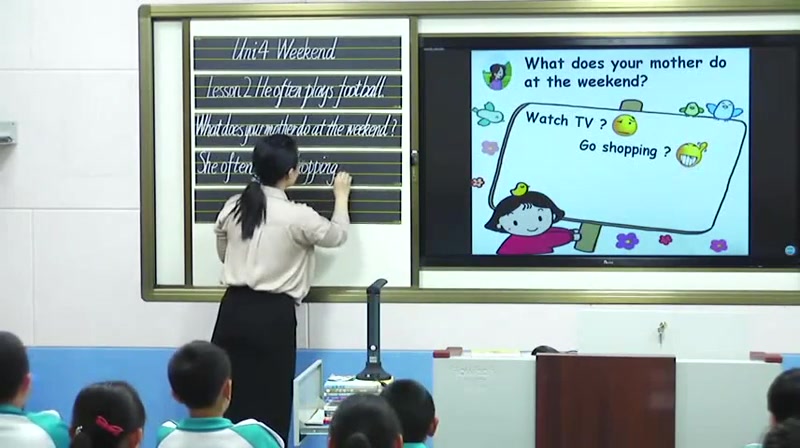 Uni 4 Weekend
Lesson 2 He often plays football.
What does your mother do at the weekend?
She often shopping
What does your mother do
at the weekend?
Watch TV ?
Go shopping ?